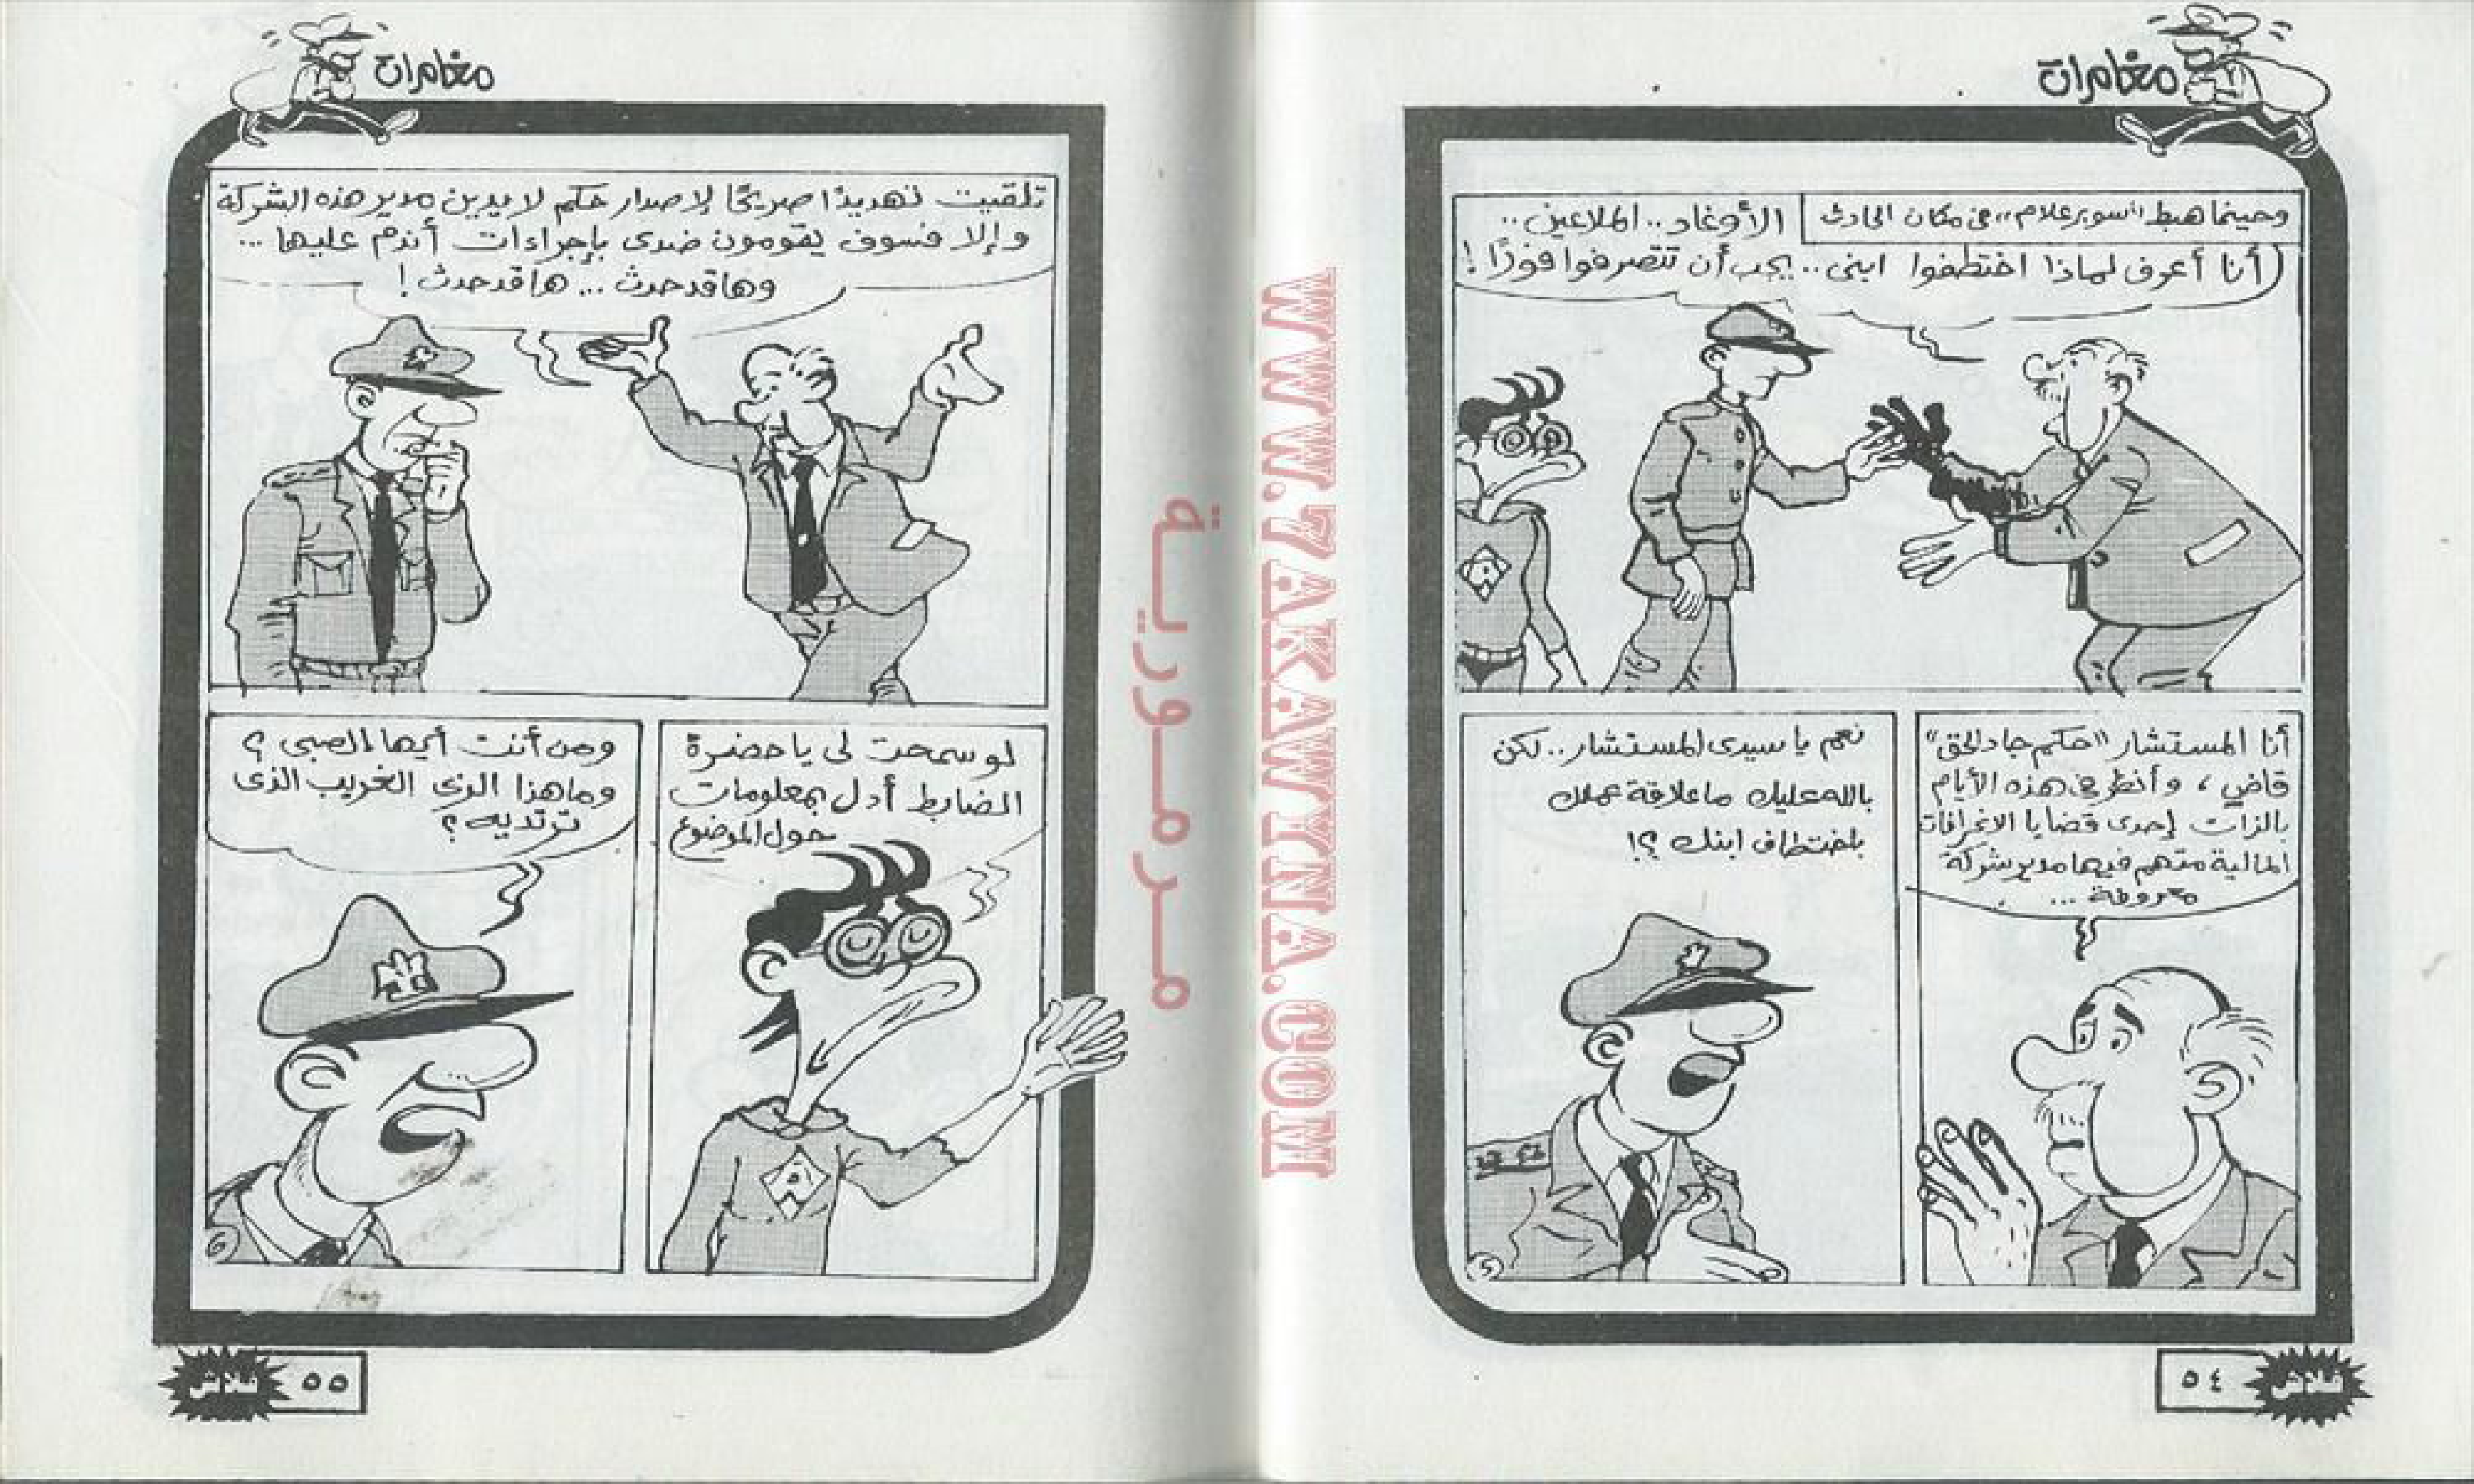 مغامرات
وحينما هبط "سوبر علام" فى مكان الحادث
الأوغاد.. الملاعين..
أنا أعرف لماذا اختطفوا ابنى.. يجب أن تتصرفوا فورًا!
أنا المستشار "حكم جاد الحق"
قاضي، وأنظر فى هذه الأيام
بالذات إحدى قضايا الانحرافات
المالية متهم فيها مدير شركة
معروفة...
نعم يا سيدى المستشار.. لكن
بالله عليك ما علاقة عملك
باختطاف ابنك ؟!
5
٥٤
فلاش
مغامرات
تلقيت تهديدًا صريحًا لإصدار حكم لا يدين مدير هذه الشركة
وإلا فسوف يقومون ضدى بإجراءات أندم عليها...
وها قد حدث... ها قد حدث!
لو سمحت لى يا حضرة
الضابط أدل بمعلومات
حول الموضوع
ومن أنت أيها الصبى ؟
وما هذا الزى الغريب الذى
ترتديه ؟
6
٥٥
فلاش
مرمورية
WWW.7AKAWINA.COM